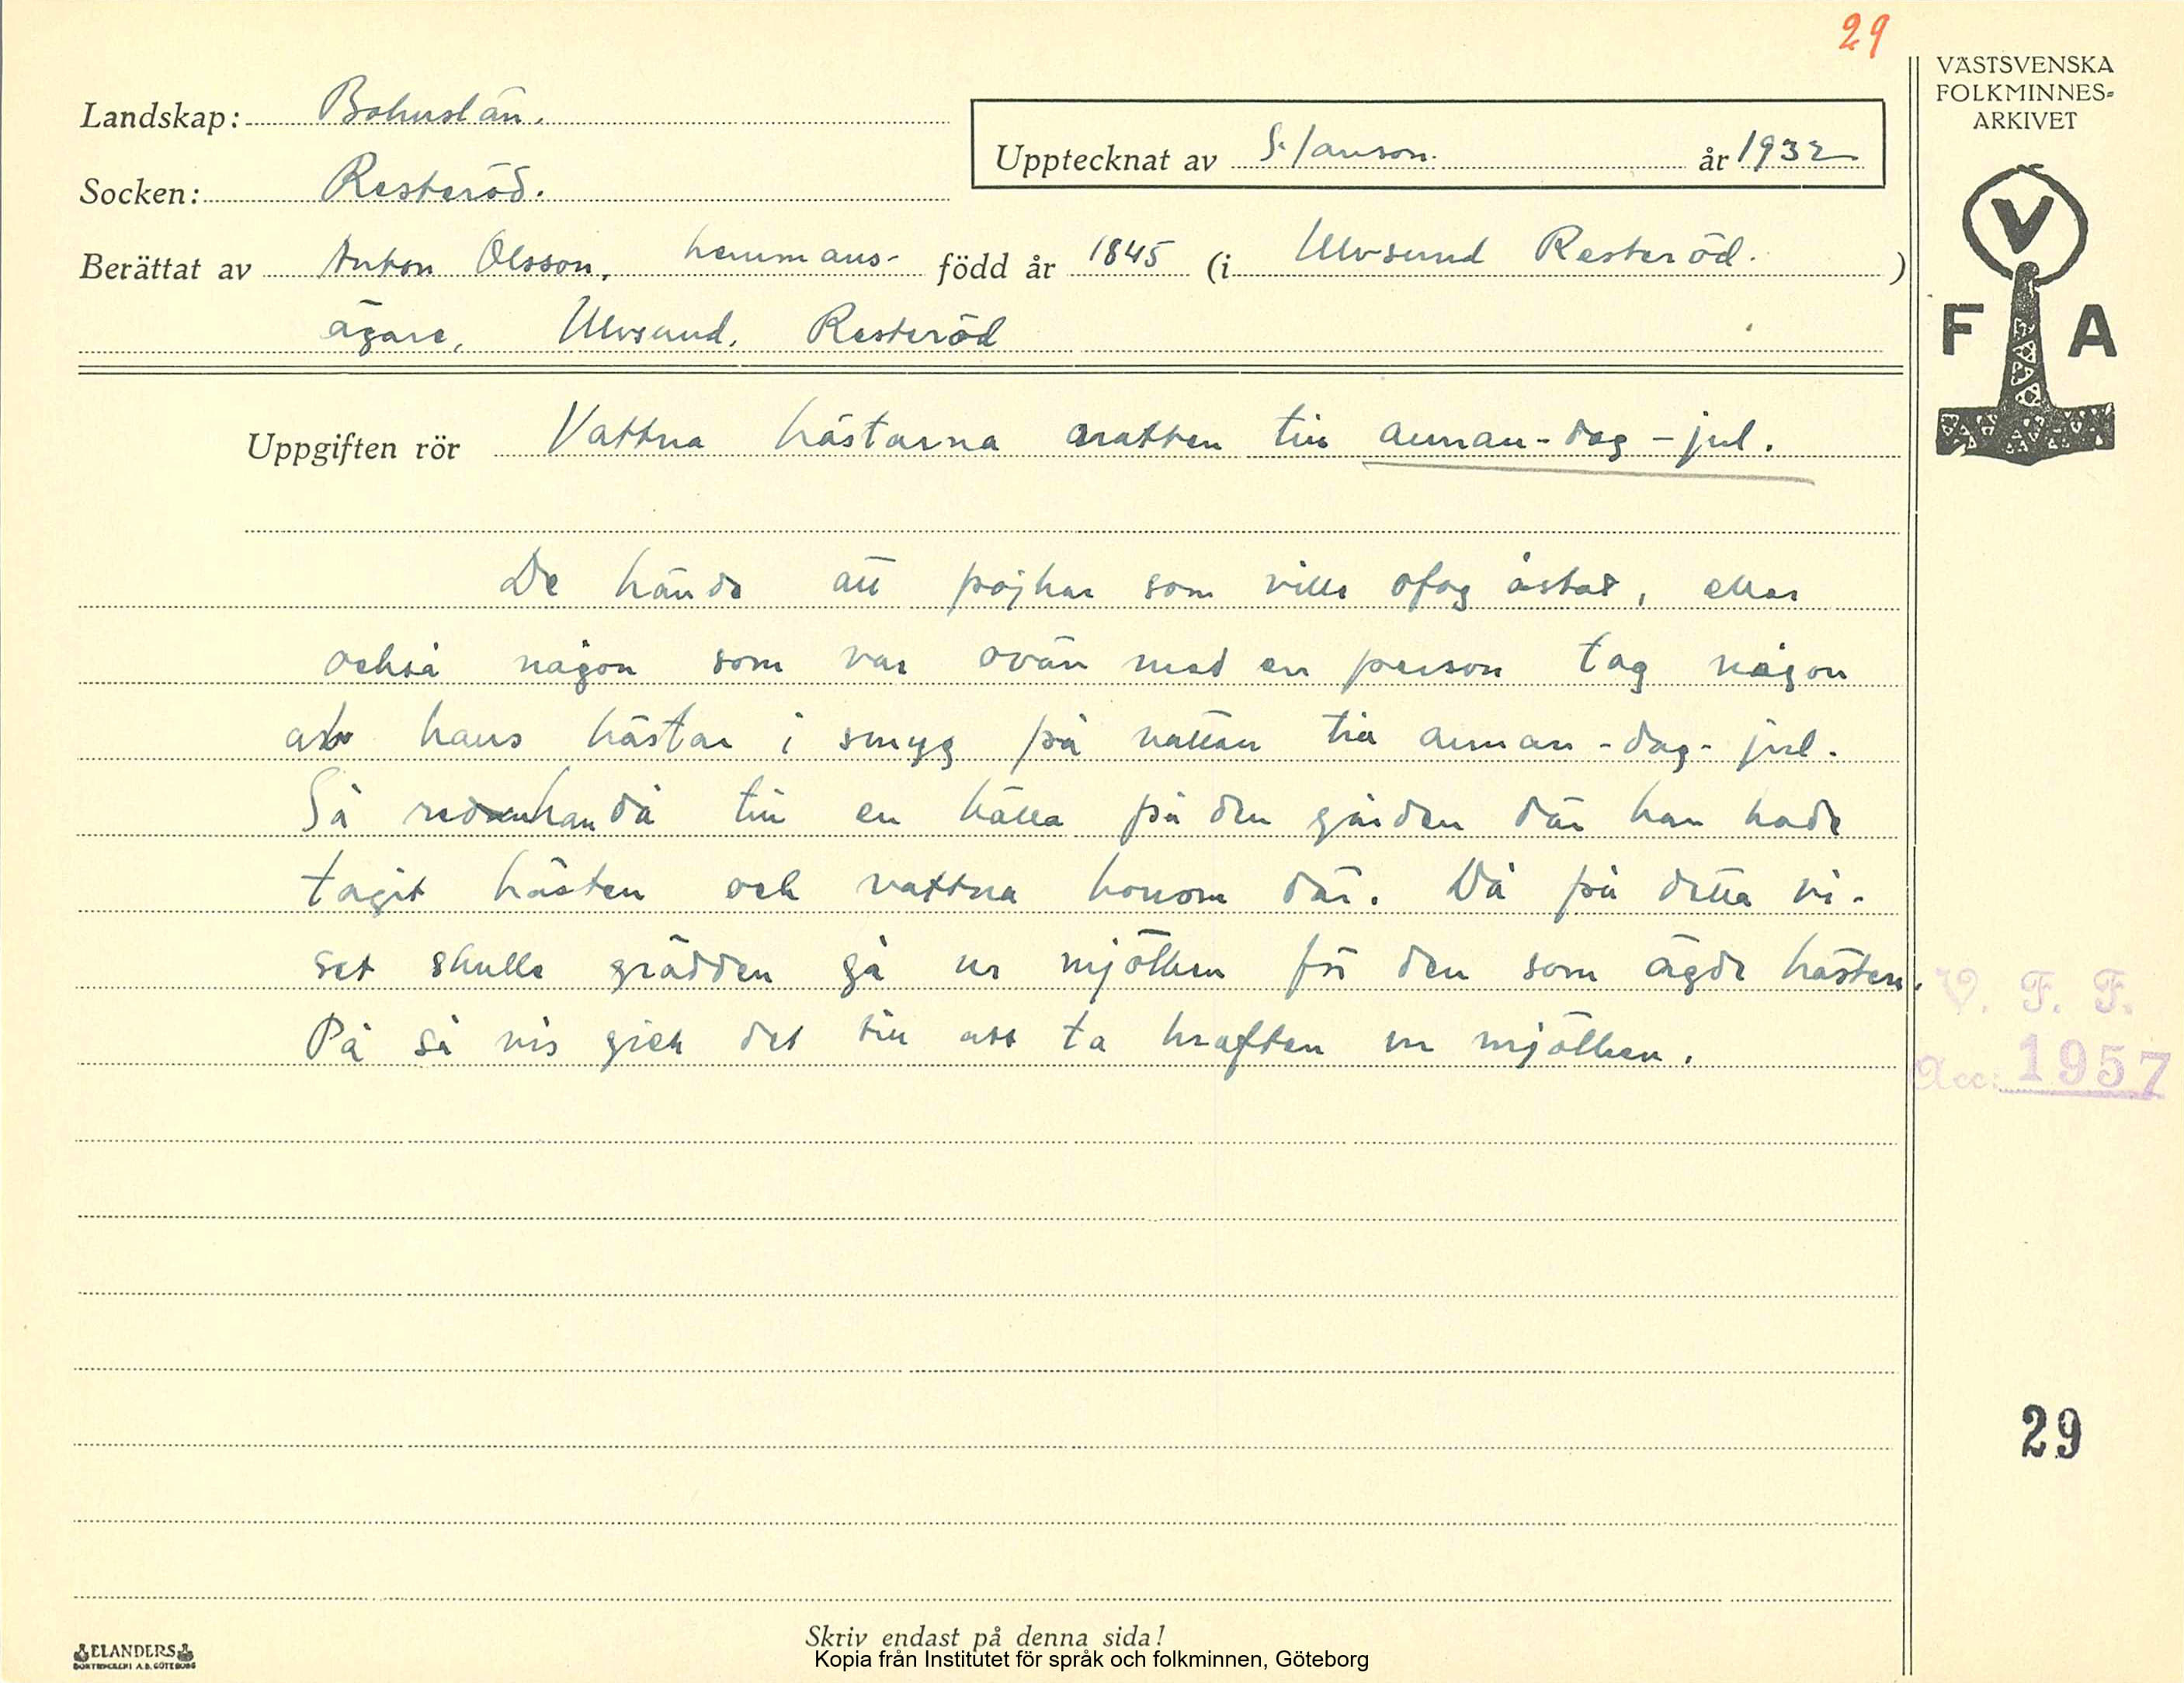 29
VÄSTSVENSKA
FOLKMINNES-
ARKIVET
Landskap: Bohuslän.
Upptecknat av S. Janson. år 1932
Socken: Resteröd.
Berättat av Anton Olsson, hemmans- född år 1845 (i Ulvsund Resteröd.)
ägare, Ulvsund, Resteröd
V
F A
Uppgiften rör Vattna hästarna natten till annan-dag-jul.
De hände att pojkar som ville ofog åstad, eller
också någon som var ovän med en person tog någon
av hans hästar i smyg på natten till annan-dag-jul.
Så red han då till en källa på den gården där han hade
tagit hästen och vattna honom där. Då på detta vi-
set skulle grädden gå ur mjölken för den som ägde hästen.
På så vis gick det till att ta kraften ur mjölken.
V. F. F.
Acc: 1957
29
Skriv endast på denna sida!
ELANDERS
BOKTRYCKERI A.B. GÖTEBORG
Kopia från Institutet för språk och folkminnen, Göteborg